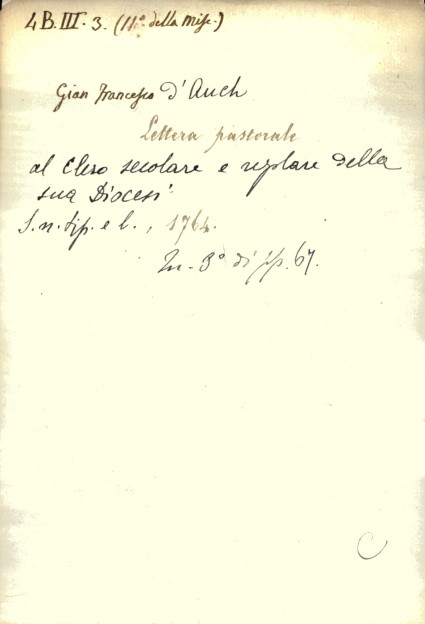 4 B. III. 3. (11ª della Misc.)
Gian Francesco d'Auch
Lettera pastorale
al Clero secolare e regolare della
sua Diocesi
S. n. tip. e l., 1764.
In-8° di pp. 67.
C